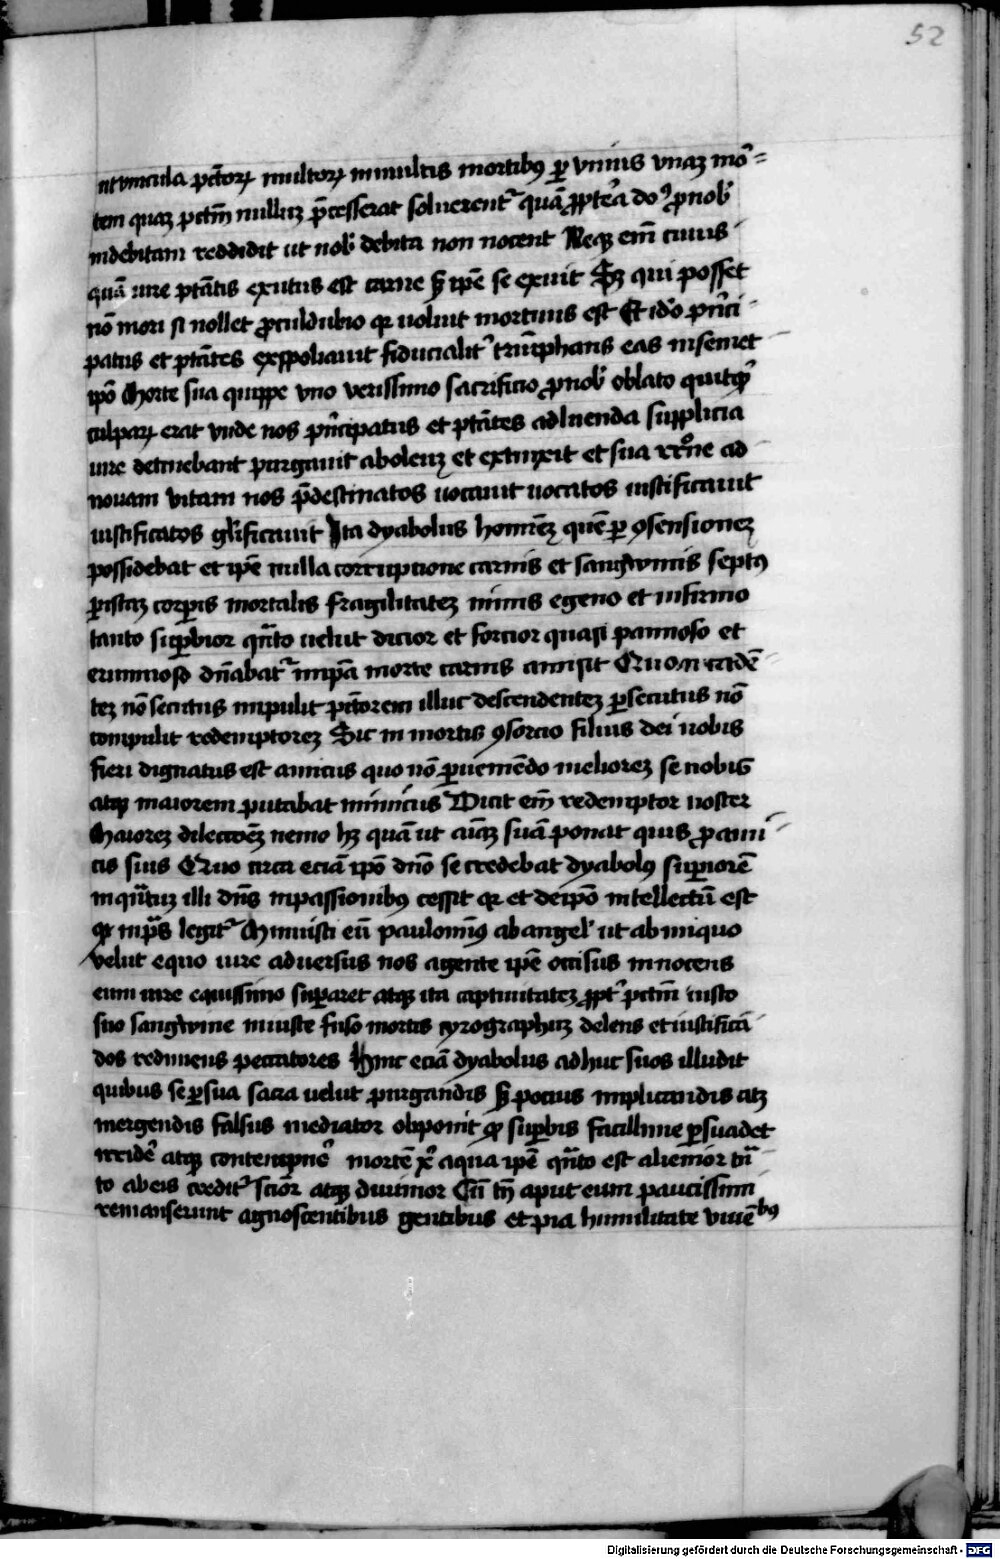 52
ut vincula pctoꝝ multoꝝ in multis mortibꝰ ꝑ vnius vnaꝫ mor̄
tem quaꝫ pctm̄ nulluꝫ p̄cesserat soluerent᷑ quā ꝓpt᷑ea doꝰ ꝓ nob᷑
indebitam reddidit ut nob᷑ debita non nocent Neqꝫ em̄ cuius
quā iure ptātis exutus est carne ꝫ ip̄e se exuit Sꝫ qui posset
nō mori si nollet ꝓculdubio qꝛ uoluit mortuus est Et id᷑o pͥnci
patus et ptātes exspoliauit fiducialit᷑ triūphans eas in semet
ip̄o Morte sua quippe vno verissimo sacrificio ꝓ nob᷑ oblato quitqͥd
culpaꝝ erat vnde nos pͥncipatus et ptātes ad luenda supplicia
iure detinebant purgauit aboleuꝫ et extinxit et sua rr̄one ad
nouam vitam nos p̄destinatos uocauit uocatos iustificauit
iustificatos gl᷑ificauit Ita dyabolus hominēꝫ quē ꝑ ꝯsensionez
possidebat et ip̄e nulla corrupcione carnis et sangwinis septꝰ
ꝑ istaꝫ corꝑis mortalis fragilitateꝫ nimis egeno et infirmo
tanto suꝑbior qͣnto uelut dicior et forcior quasi pannoso et
erumnoso dn̄abat᷑ in ip̄a morte carnis amisit Quo n cadē
teꝫ nō secutus impulit pctorem illuc descendenteꝫ ꝑsecutus nō
compulit redemptoreꝫ Sic in mortis ꝯsorcio filius dei nobis
fieri dignatus est amicus quo nō ꝑueniendo melioreꝫ se nobis
atqꝫ maiorem putabat inimicus Dicit em̄ redemptor noster
Maioreꝫ dilectōeꝫ nemo hꝫ quā ut aīaꝫ suā ponat quis ꝓ ami
cis suis Quo circa eciā ip̄o dn̄o se credebat dyabolꝰ suꝑiorē
inqͣntuꝫ illi dn̄s in passionibꝰ cessit qꝛ et de ip̄o intellectū est
qͦ in ps̄ legit᷑ Minuisti eū paulominꝰ ab angel᷑ ut ab iniquo
velut equo iure aduersus nos agente ip̄e occisus innocens
eum iure equissimo suꝑaret atqꝫ ita captiuitateꝫ ꝓpt᷑ pctm̄ iusto
suo sangwine iniuste fuso mortis cyrographuꝫ delens et iustificā
dos redimens peccatores Hinc eciā dyabolus adhuc suos illudit
quibus se ꝑ sua sacra uelut purgandis ꝫ pocius implicandis atꝫ
mergendis falsus mediator obponit qͦ suꝑbis facillime ꝑsuadet
irridē᷑ atqꝫ contempnē᷑ mortē xͥ a qua ip̄e qͣnto est alienior tn̄
to ab eis credit᷑ scīor atqꝫ diuinior Cū tn̄ aput eum paucissimi
remanserunt agnoscentibus gentibus et pia humilitate viuē bꝰ
Digitalisierung gefördert durch die Deutsche Forschungsgemeinschaft - DFG